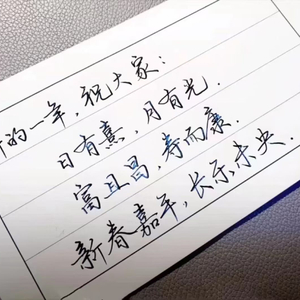 的一年，祝大家：
日有熹，月有光．
富且昌，寿而康．
新春嘉年，长乐未央．